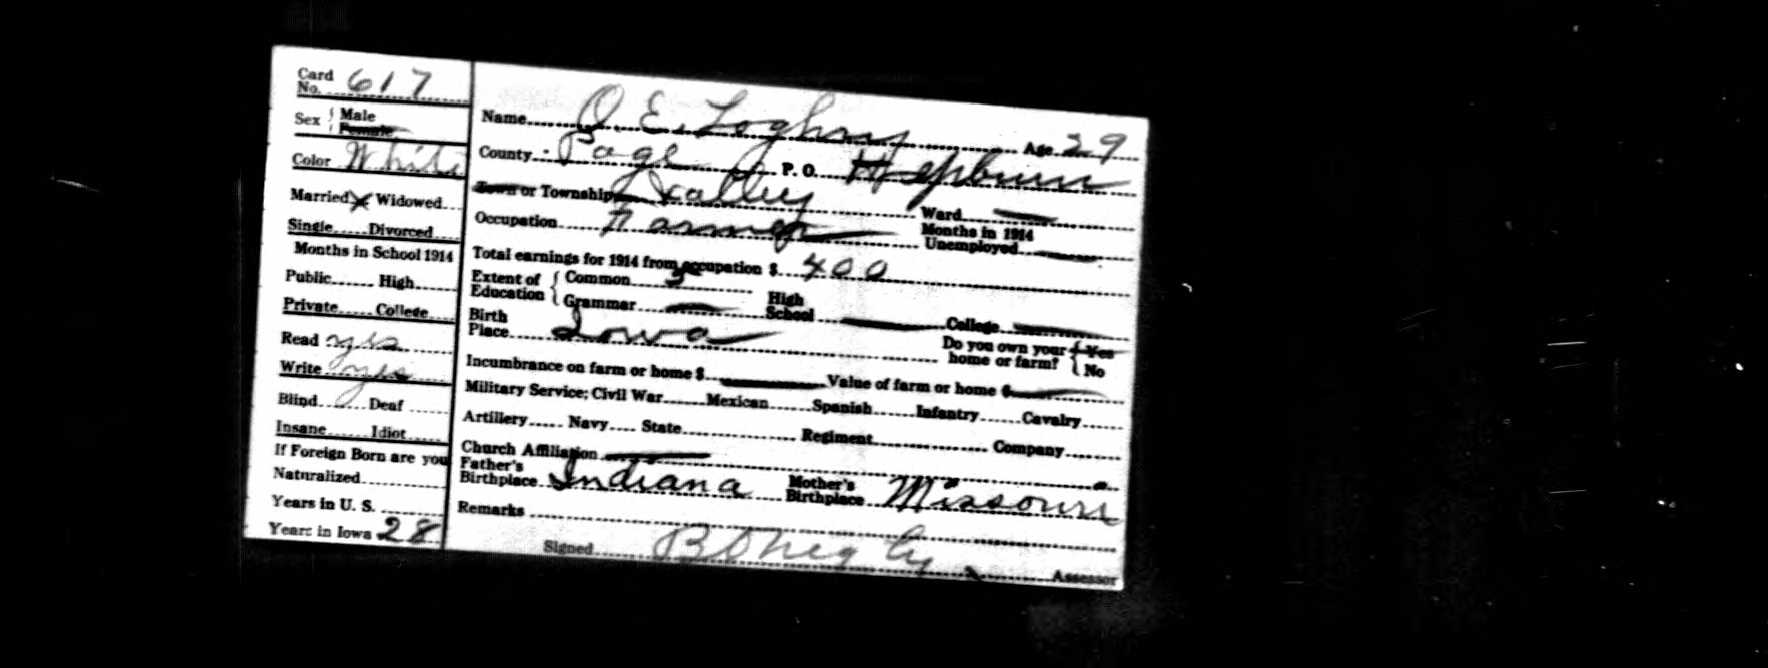 Card No. 617
Sex Male Female
Color White
Married x Widowed
Single Divorced
Months in School 1914
Public High
Private College
Read yes
Write yes
Blind Deaf
Insane Idiot
If Foreign Born are you
Naturalized
Years in U. S.
Years in Iowa 28
Name O. E. Loghry Age 29
County Page P. O. Hepburn
Town or Township Valley Ward
Occupation Farmer Months in 1914 Unemployed
Total earnings for 1914 from occupation $ 400
Extent of Education Common 5
Grammar High School College
Birth Place Iowa Do you own your home or farm? Yes No
Incumbrance on farm or home $ Value of farm or home $
Military Service; Civil War Mexican Spanish Infantry Cavalry
Artillery Navy State Regiment Company
Church Affiliation
Father's Birthplace Indiana Mother's Birthplace Missouri
Remarks
Signed Assessor